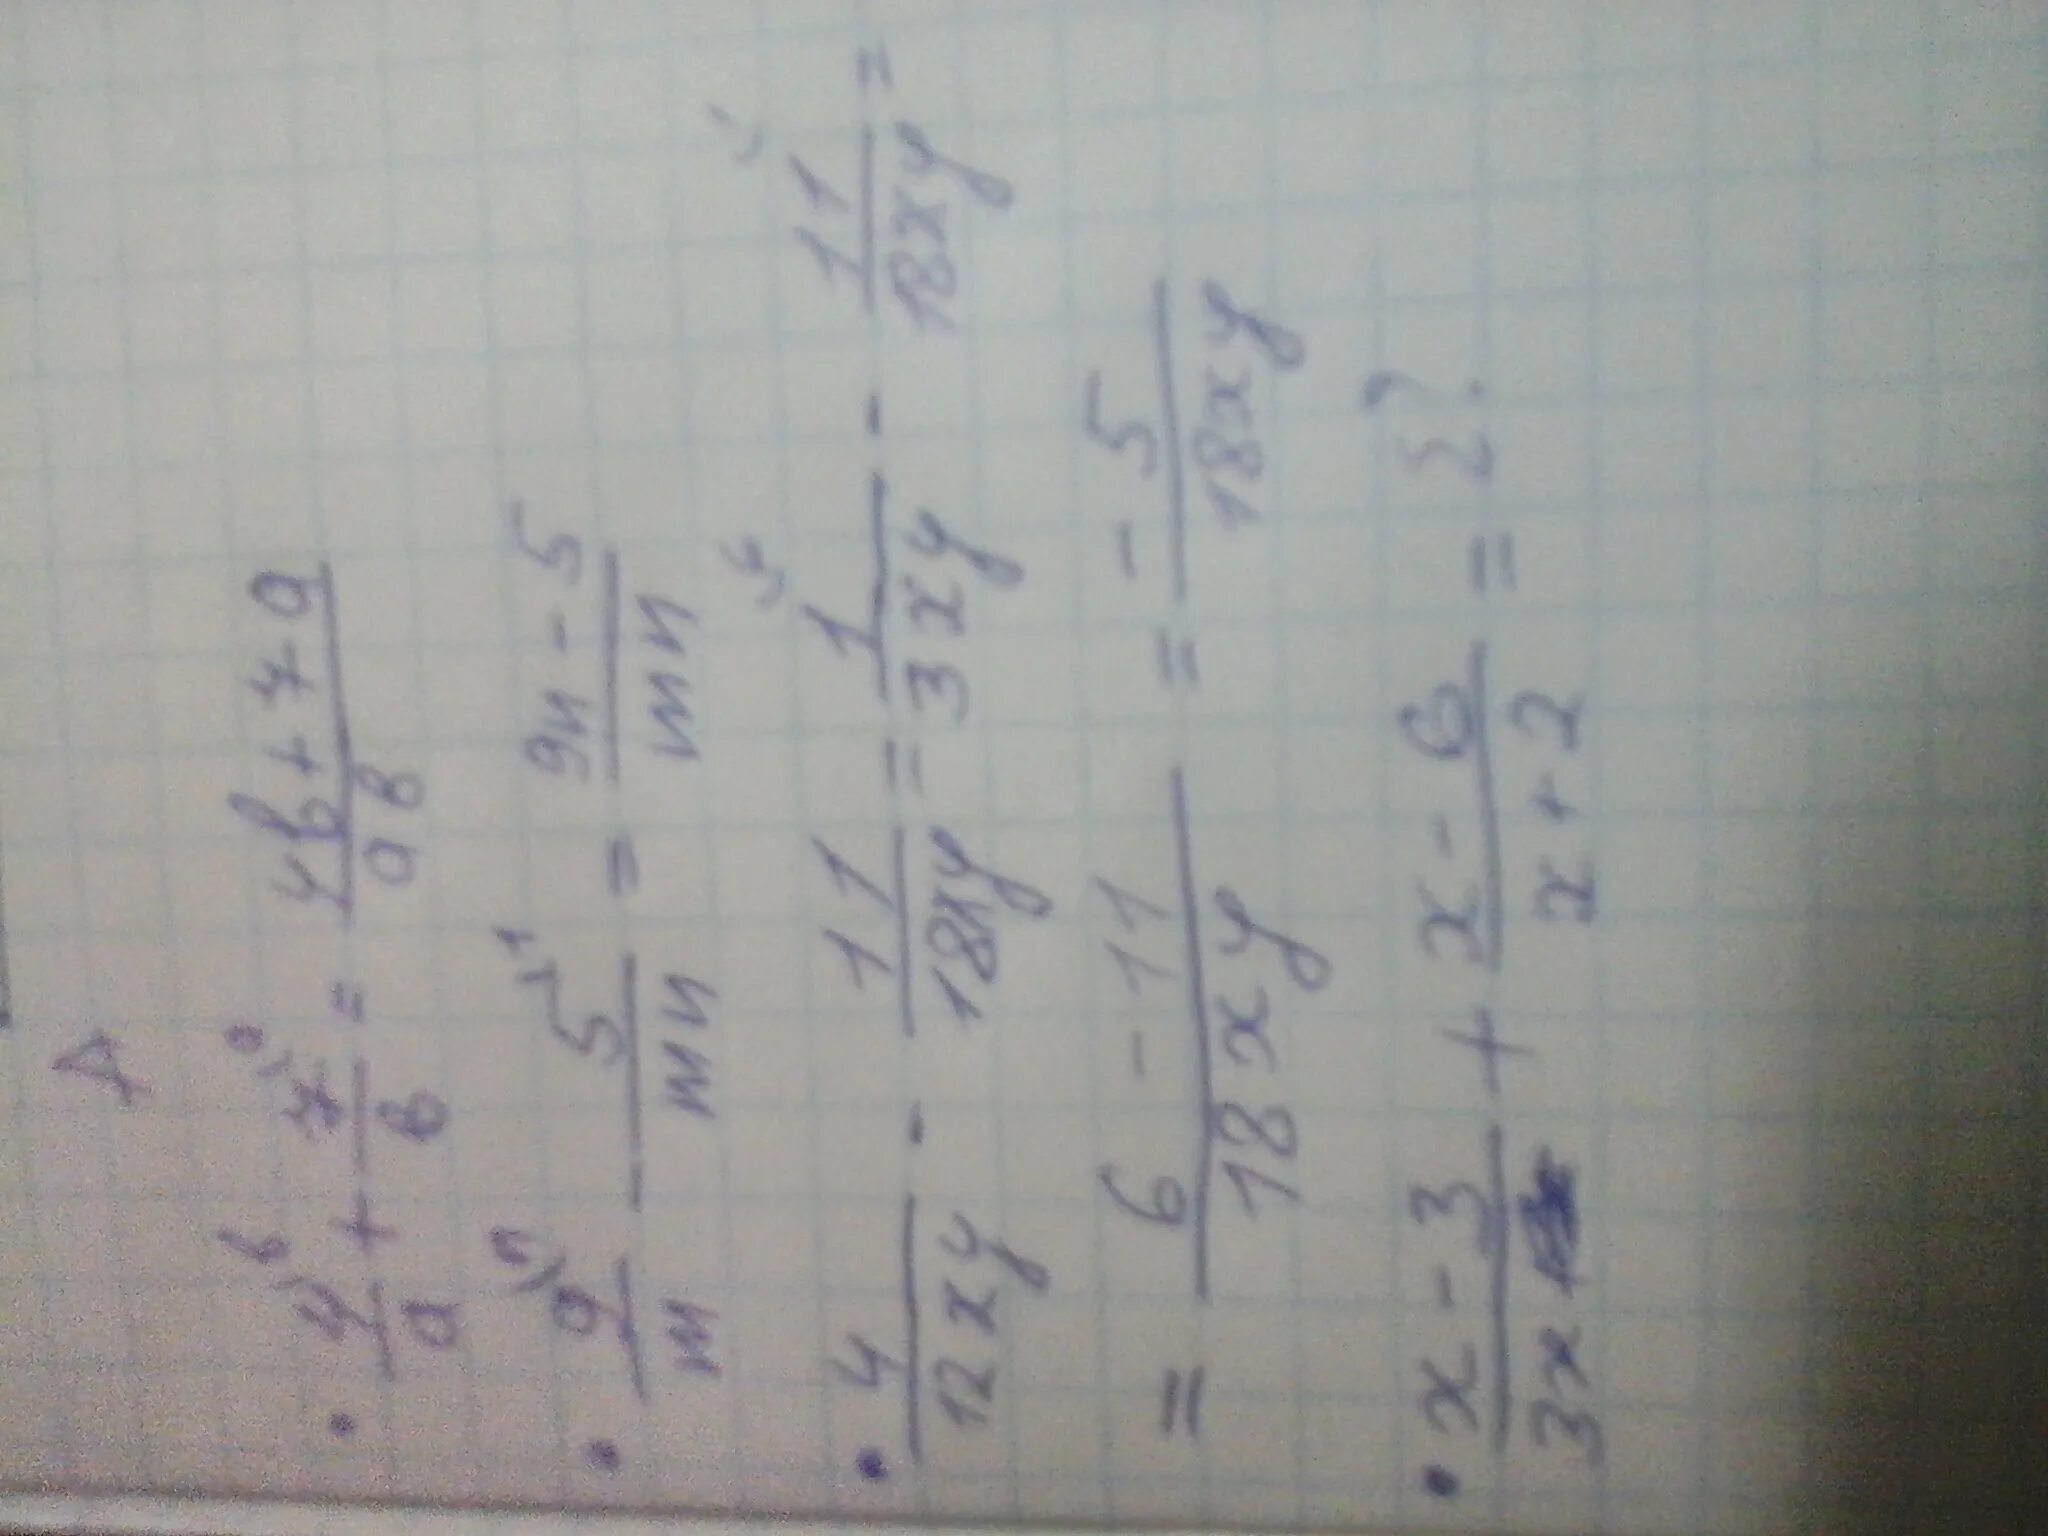 • 4/a + 7/в = 4b + 7a/aв
• 9/m - 5/mn = 9n - 5/mn
• 4/12xy - 11/18xy = 1/3xy - 11/18xy =
= 6 - 11/18xy = - 5/18xy
• x - 3/3x + x - 6/x + 2 =